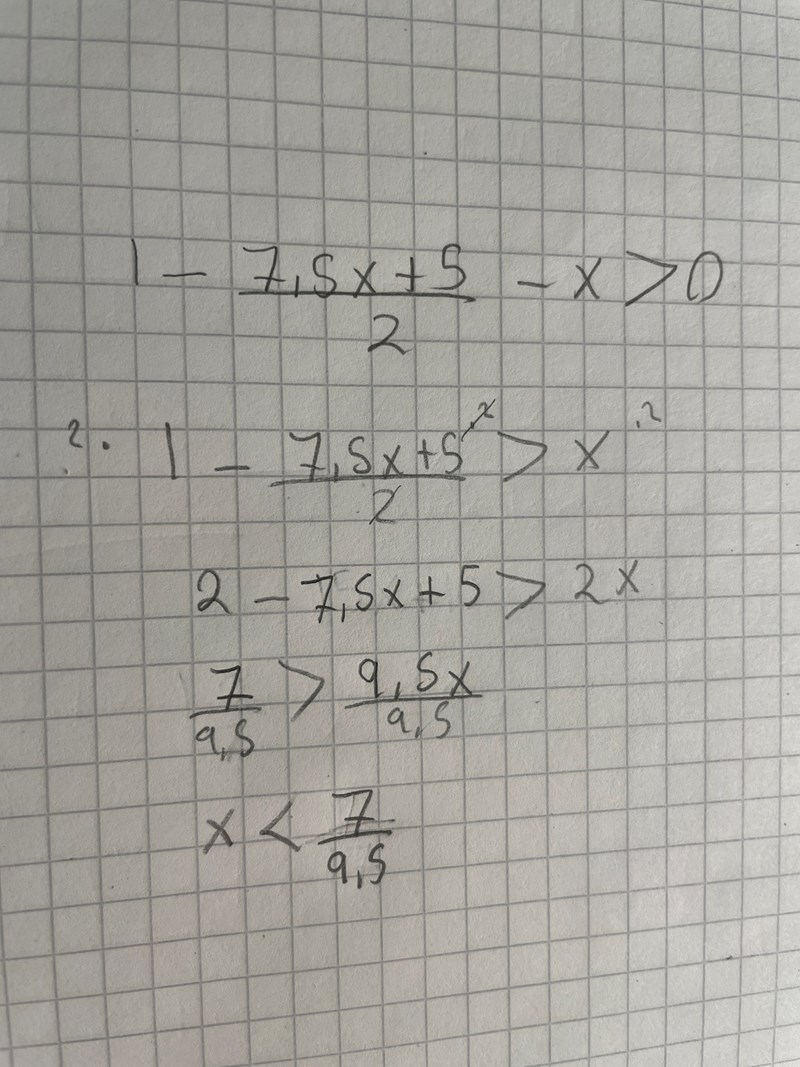 1 - (7,5x+5)/2 - x > 0
2· 1 - (7,5x+5)/2 ·2 > x ·2
2 - 7,5x+5 > 2x
7/9,5 > 9,5x/9,5
x < 7/9,5